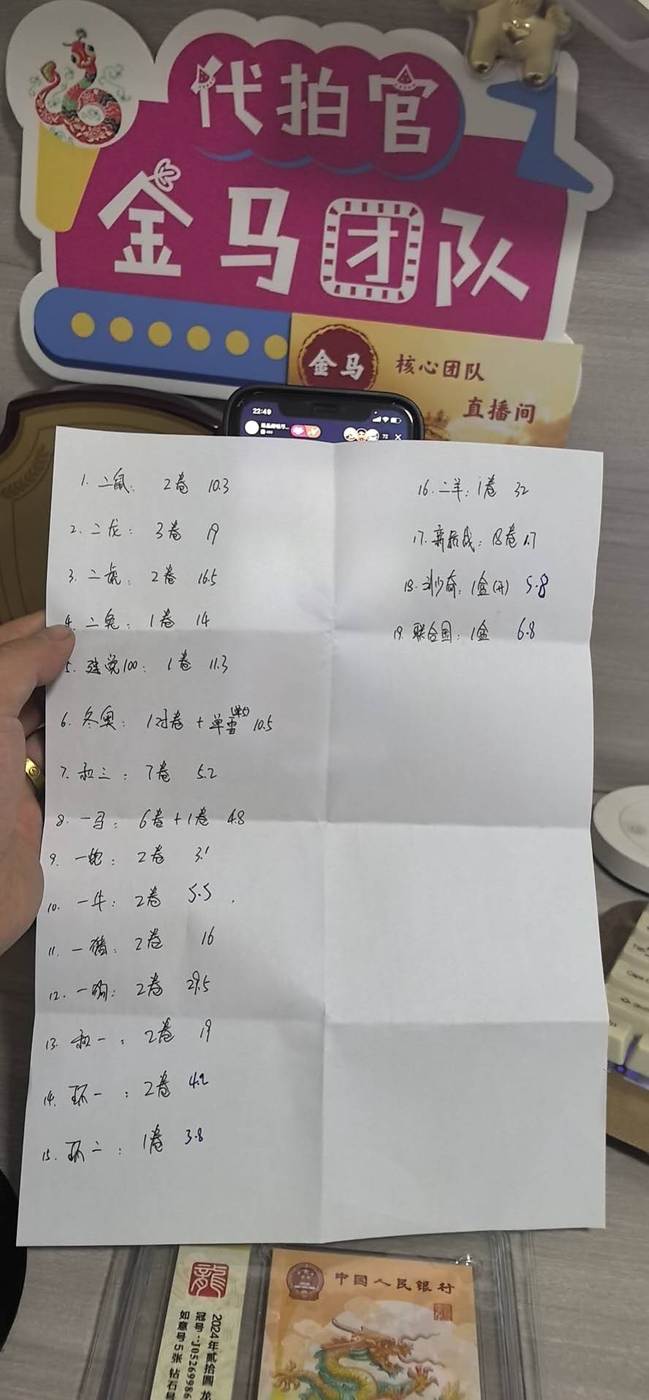 代拍官
金马团队
金马 核心团队
直播间
22:49
1. 二鼠: 2卷 10.3
2. 二龙: 3卷 19
3. 二虎: 2卷 16.5
4. 二兔: 1卷 14
5. 建党100: 1卷 11.3
6. 冬奥: 1对卷 + 单雪 10.5
7. 和三: 7卷 5.2
8. 一马: 6卷+1卷 4.8
9. 一蛇: 2卷 3.1
10. 一牛: 2卷 5.5
11. 一猪: 2卷 16
12. 一狗: 2卷 29.5
13. 和一: 2卷 19
14. 环一: 2卷 4.2
15. 环二: 1卷 3.8
16. 二羊: 1卷 32
17. : 18卷 1.7
18. 刘少奇: 1盒(开) 5.8
19. 联合国: 1盒 6.8
龍
2024年贰拾圆 龙
冠号:J05269986
如意号5张 钻石号
中国人民银行